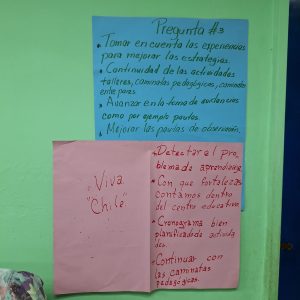 Pregunta #3
• Tomar en cuenta las experiencias
para mejorar las estrategias.
• Continuidad de las actividades
talleres, caminatas pedagógicas, caminatas
entre pares.
• Avanzar en la toma de
como por ejemplo pautas.
• Mejorar las pautas de observación.
"Viva
"Chile"
• Detectar el pro
blema de aprendizaje
• Con que fortalezas
contamos dentro
del centro educativo
• Cronograma bien
planificado de activida
des.
• Continuar con
las caminatas
pedagógicas.